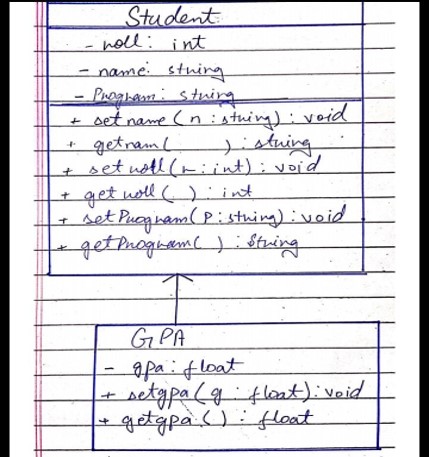 Student
- roll: int
- name: string
- Program: string
+ set name (n: string): void
+ getnam( ): string
+ set roll(r: int): void
+ get roll( ): int
+ set Program(P: string): void
+ getProgram( ): String
GPA
- gpa: float
+ setgpa(g: float): void
+ getgpa( ): float